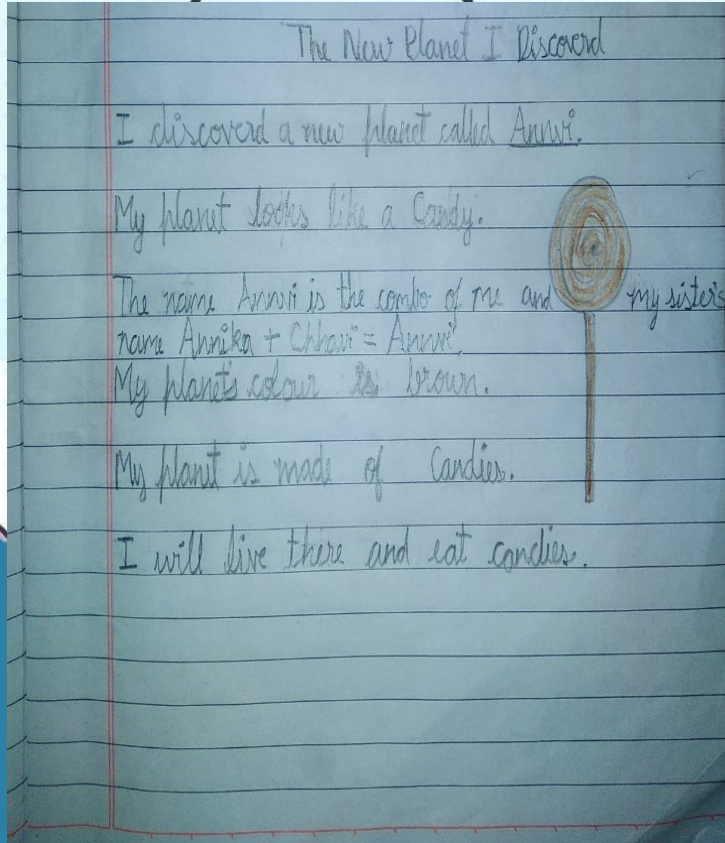 The New Planet I Discoverd
I discoverd a new planet called Annvi.
My planet looks like a Candy.
The name Annvi is the combo of me and my sister's
name Annika + Chhavi = Annvi.
My planet's colour is brown.
My planet is made of Candies.
I will live there and eat candies.